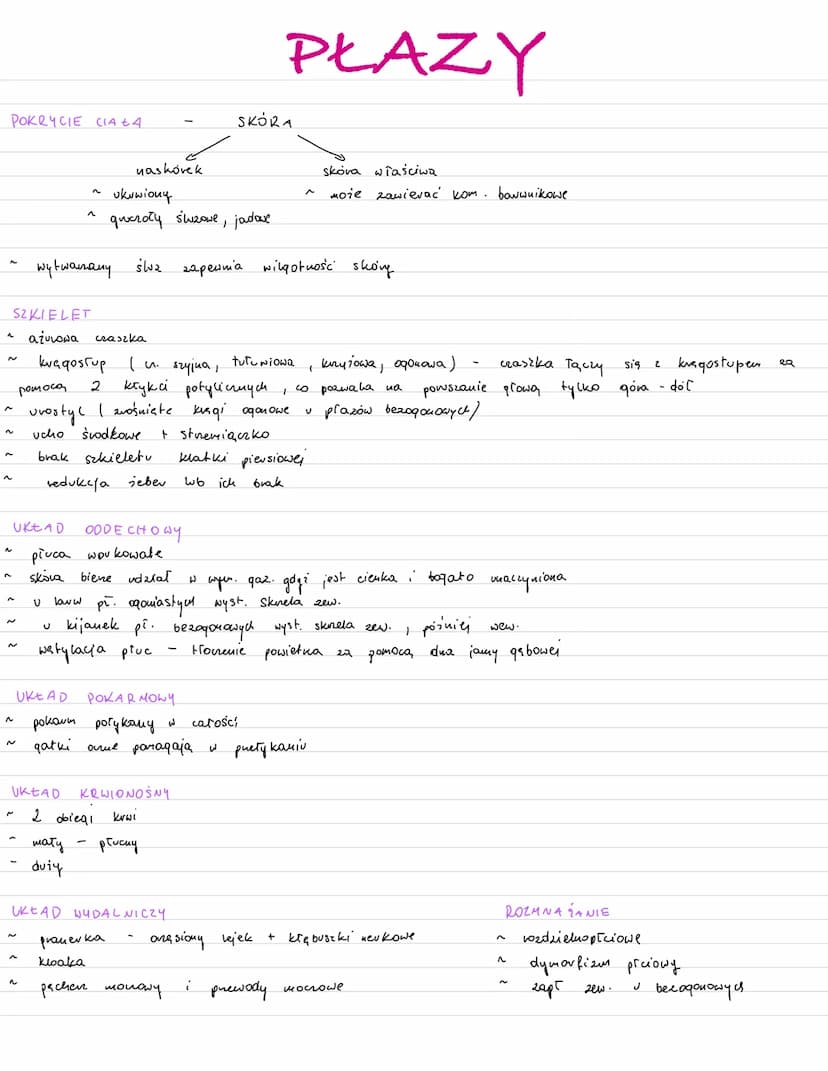 PŁAZY
POKRYCIE CIAŁA - SKÓRA
naskórek skóra właściwa
~ ukrwiony ~ może zawierać kom. barwnikowe
~ gruczoły śluzowe, jadowe
~ wytwarzany śluz zapewnia wilgotność skóry
SZKIELET
~ ażurowa czaszka
~ kręgosłup ( cz. szyjna, tułowiowa, krzyżowa, ogonowa) - czaszka łączy się z kręgosłupem za
pomocą 2 kłykci potylicznych, co pozwala na poruszanie głową tylko góra - dół
~ urostyl ( zrośnięte kręgi ogonowe u płazów bezogonowych)
~ ucho środkowe + strzemiączko
~ brak szkieletu klatki piersiowej
~ redukcja żeber lub ich brak
UKŁAD ODDECHOWY
~ płuca workowate
~ skóra bierze udział w wym. gaz. gdyż jest cienka i bogato unaczyniona
~ u larw pł. ogoniastych wyst. skrzela zew.
~ u kijanek pł. bezogonowych wyst. skrzela zew., później wew.
~ wetylacja płuc - tłoczenie powietrza za pomocą dna jamy gębowej
UKŁAD POKARMOWY
~ pokarm połykany w całości
~ gałki oczne pomagają w przełykaniu
UKŁAD KRWIONOŚNY
~ 2 obiegi krwi
- mały - płucny
- duży
UKŁAD WYDALNICZY
~ pranerka - orzęsiony lejek + kłębuszki nerkowe
~ kloaka
~ pęcherz moczowy i przewody moczowe
ROZMNAŻANIE
~ rozdzielnopłciowe
~ dymorfizm płciowy
~ zapł zew. u bezogonowych